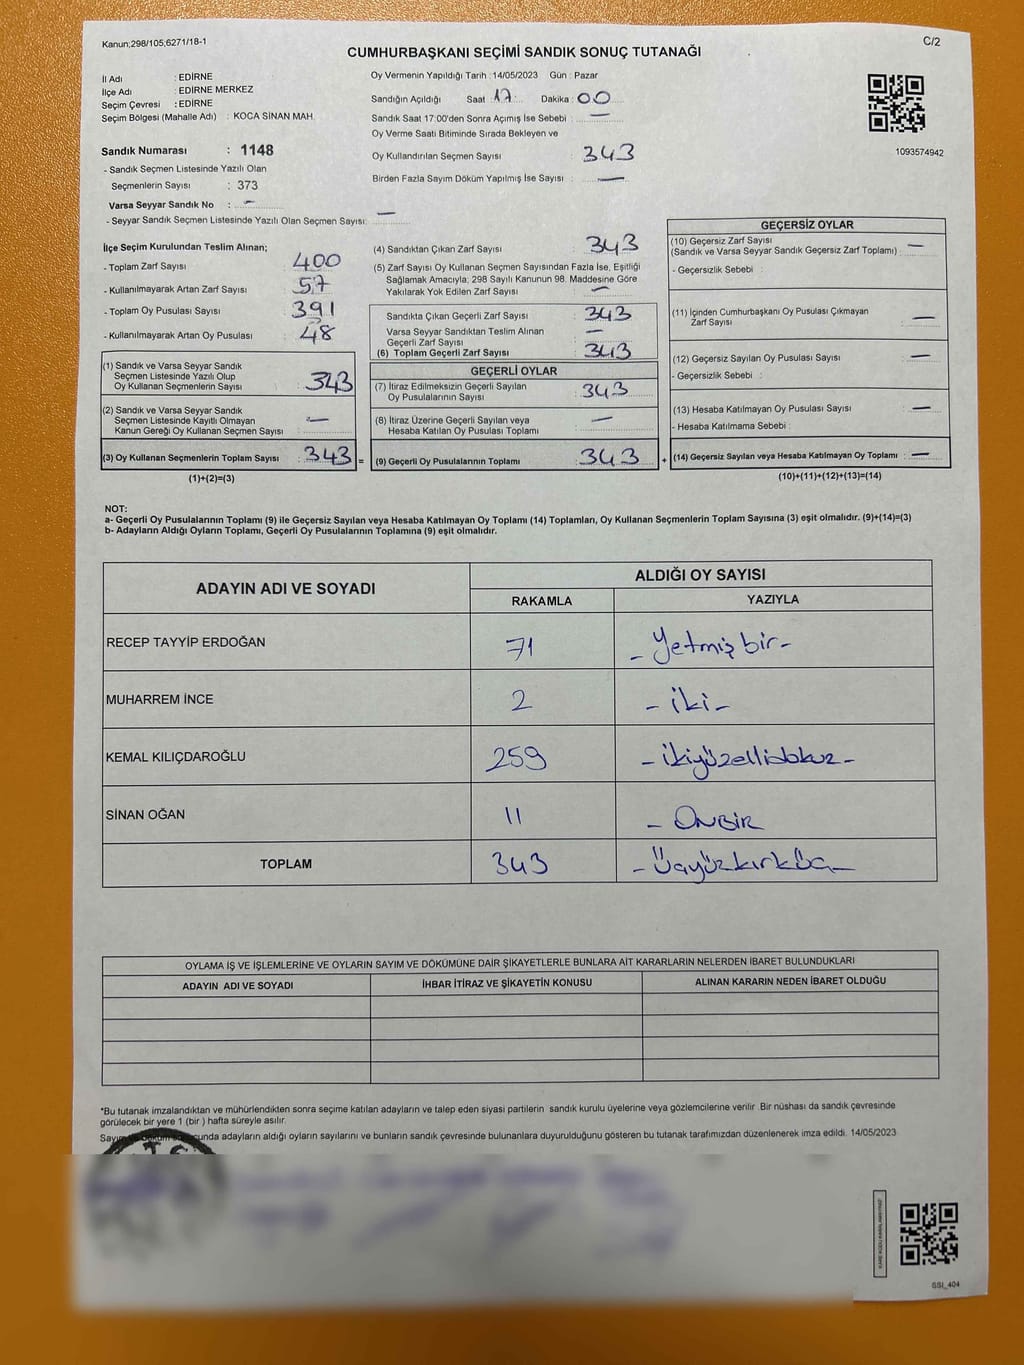 Kanun;298/105;6271/18-1
C/2
CUMHURBAŞKANI SEÇİMİ SANDIK SONUÇ TUTANAĞI
İl Adı : EDİRNE
İlçe Adı : EDİRNE MERKEZ
Seçim Çevresi : EDİRNE
Seçim Bölgesi (Mahalle Adı) : KOCA SİNAN MAH.
Sandık Numarası : 1148
- Sandık Seçmen Listesinde Yazılı Olan
Seçmenlerin Sayısı : 373
Varsa Seyyar Sandık No : -
- Seyyar Sandık Seçmen Listesinde Yazılı Olan Seçmen Sayısı: —
Oy Vermenin Yapıldığı Tarih : 14/05/2023 Gün : Pazar
Sandığın Açıldığı Saat : 17 Dakika : 00
Sandık Saat 17:00'den Sonra Açımış İse Sebebi : —
Oy Verme Saati Bitiminde Sırada Bekleyen ve
Oy Kullandırılan Seçmen Sayısı : 343
Birden Fazla Sayım Döküm Yapılmış İse Sayısı : —
1093574942
İlçe Seçim Kurulundan Teslim Alınan;
- Toplam Zarf Sayısı : 400
- Kullanılmayarak Artan Zarf Sayısı : 57
- Toplam Oy Pusulası Sayısı : 391
- Kullanılmayarak Artan Oy Pusulası : 48
(1) Sandık ve Varsa Seyyar Sandık
Seçmen Listesinde Yazılı Olup
Oy Kullanan Seçmenlerin Sayısı : 343
(2) Sandık ve Varsa Seyyar Sandık
Seçmen Listesinde Kayıtlı Olmayan
Kanun Gereği Oy Kullanan Seçmen Sayısı : —
(3) Oy Kullanan Seçmenlerin Toplam Sayısı : 343 =
(1)+(2)=(3)
(4) Sandıktan Çıkan Zarf Sayısı : 343
(5) Zarf Sayısı Oy Kullanan Seçmen Sayısından Fazla İse, Eşitliği
Sağlamak Amacıyla, 298 Sayılı Kanunun 98. Maddesine Göre
Yakılarak Yok Edilen Zarf Sayısı : —
Sandıkta Çıkan Geçerli Zarf Sayısı : 343
Varsa Seyyar Sandıktan Teslim Alınan
Geçerli Zarf Sayısı : —
(6) Toplam Geçerli Zarf Sayısı : 343
GEÇERLİ OYLAR
(7) İtiraz Edilmeksizin Geçerli Sayılan
Oy Pusulalarının Sayısı : 343
(8) İtiraz Üzerine Geçerli Sayılan veya
Hesaba Katılan Oy Pusulası Toplamı : —
(9) Geçerli Oy Pusulalarının Toplamı : 343 +
GEÇERSİZ OYLAR
(10) Geçersiz Zarf Sayısı
(Sandık ve Varsa Seyyar Sandık Geçersiz Zarf Toplamı) : —
- Geçersizlik Sebebi :
(11) İçinden Cumhurbaşkanı Oy Pusulası Çıkmayan
Zarf Sayısı : —
(12) Geçersiz Sayılan Oy Pusulası Sayısı : —
- Geçersizlik Sebebi :
(13) Hesaba Katılmayan Oy Pusulası Sayısı : —
- Hesaba Katılmama Sebebi :
(14) Geçersiz Sayılan veya Hesaba Katılmayan Oy Toplamı : —
(10)+(11)+(12)+(13)=(14)
NOT:
a- Geçerli Oy Pusulalarının Toplamı (9) ile Geçersiz Sayılan veya Hesaba Katılmayan Oy Toplamı (14) Toplamları, Oy Kullanan Seçmenlerin Toplam Sayısına (3) eşit olmalıdır. (9)+(14)=(3)
b- Adayların Aldığı Oyların Toplamı, Geçerli Oy Pusulalarının Toplamına (9) eşit olmalıdır.
ADAYIN ADI VE SOYADI
ALDIĞI OY SAYISI
RAKAMLA YAZIYLA
RECEP TAYYİP ERDOĞAN 71 - Yetmiş bir -
MUHARREM İNCE 2 - iki -
KEMAL KILIÇDAROĞLU 259 - ikiyüzellidokuz -
SİNAN OĞAN 11 - ONBİR
TOPLAM 343 - Üçyüzkırküç -
OYLAMA İŞ VE İŞLEMLERİNE VE OYLARIN SAYIM VE DÖKÜMÜNE DAİR ŞİKAYETLERLE BUNLARA AİT KARARLARIN NELERDEN İBARET BULUNDUKLARI
ADAYIN ADI VE SOYADI İHBAR İTİRAZ VE ŞİKAYETİN KONUSU ALINAN KARARIN NEDEN İBARET OLDUĞU
*Bu tutanak imzalandıktan ve mühürlendikten sonra seçime katılan adayların ve talep eden siyasi partilerin sandık kurulu üyelerine veya gözlemcilerine verilir. Bir nüshası da sandık çevresinde
görülecek bir yere 1 (bir ) hafta süreyle asılır.
adayların aldığı oyların sayılarını ve bunların sandık çevresinde bulunanlara duyurulduğunu gösteren bu tutanak tarafımızdan düzenlenerek imza edildi. 14/05/2023
T.C.
SSI_404